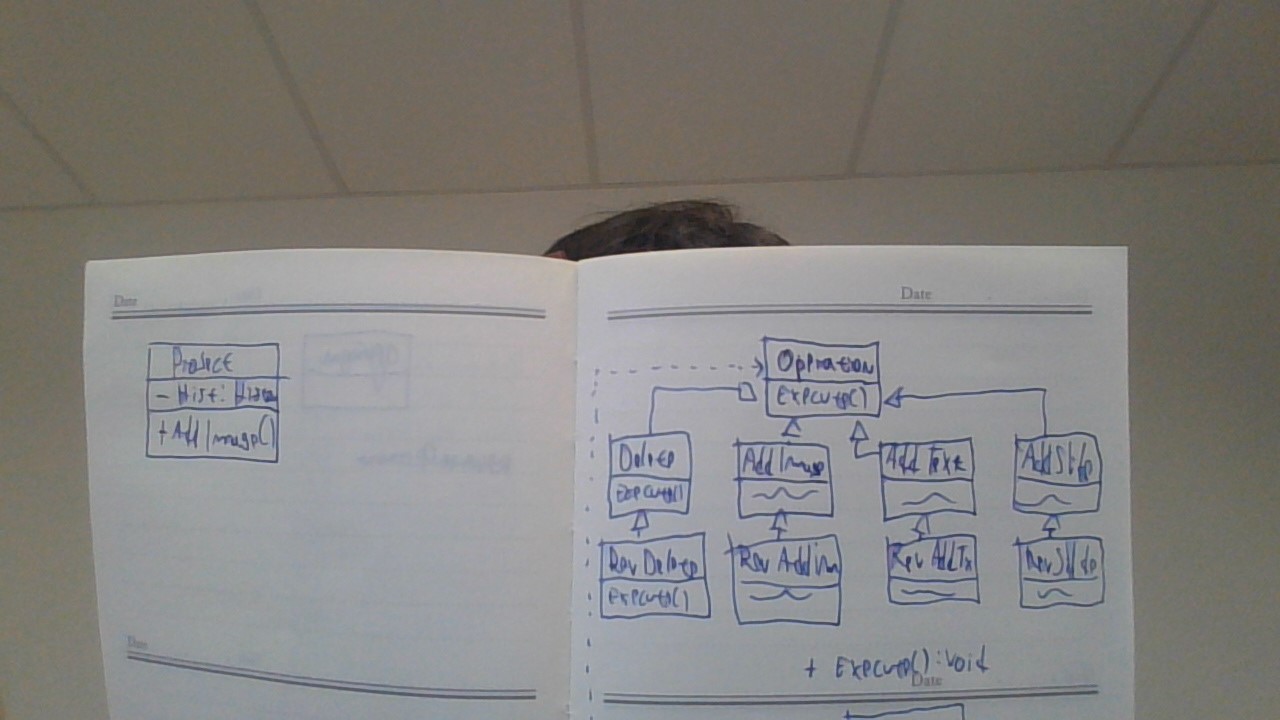 Date
Project
- Hist: Histo
+ AddImage()
Date
Date
Operation
Execute()
Delete
Execute()
AddImage
Add Text
AddSlide
Rev Delete
Execute()
Rev AddIm
Rev AddTx
RevSlide
+ Execute() : void
Date